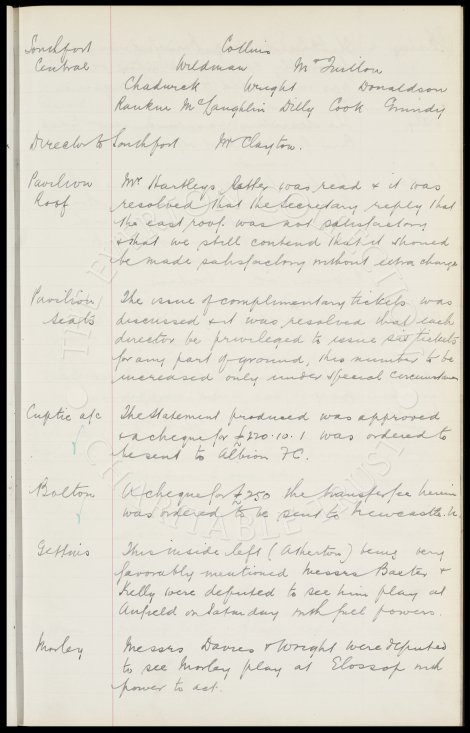 Southport Collins
Central Weldman McQuillan
Chadwick Wright Donaldson
Rankin McLaughlin Dilly Cook Grundy
Director to Southport Mr Clayton.
Pavilion Mr Hartleys letter was read & it was
Roof resolved that the Secretary reply that
the east roof was not satisfactory
& that we still contend that it should
be made satisfactory without extra charge
Pavilion The issue of complimentary tickets was
seats discussed & it was resolved that each
director be privileged to issue six tickets
for any part of ground, this number to be
increased only under special circumstances
Cuptie a/c The Statement produced was approved
& a cheque for £220.10.1 was ordered to
be sent to Albion FC.
Bolton A cheque for £250 the transfer fee herein
was ordered to be sent to Newcastle. U.
This inside left (Atherton) being very
favorably mentioned Messrs Baxter &
Kelly were deputed to see him play at
Anfield on Saturday with full powers.
Morley Messrs Davies & Wright were deputed
to see Morley play at Glossop with
power to act.